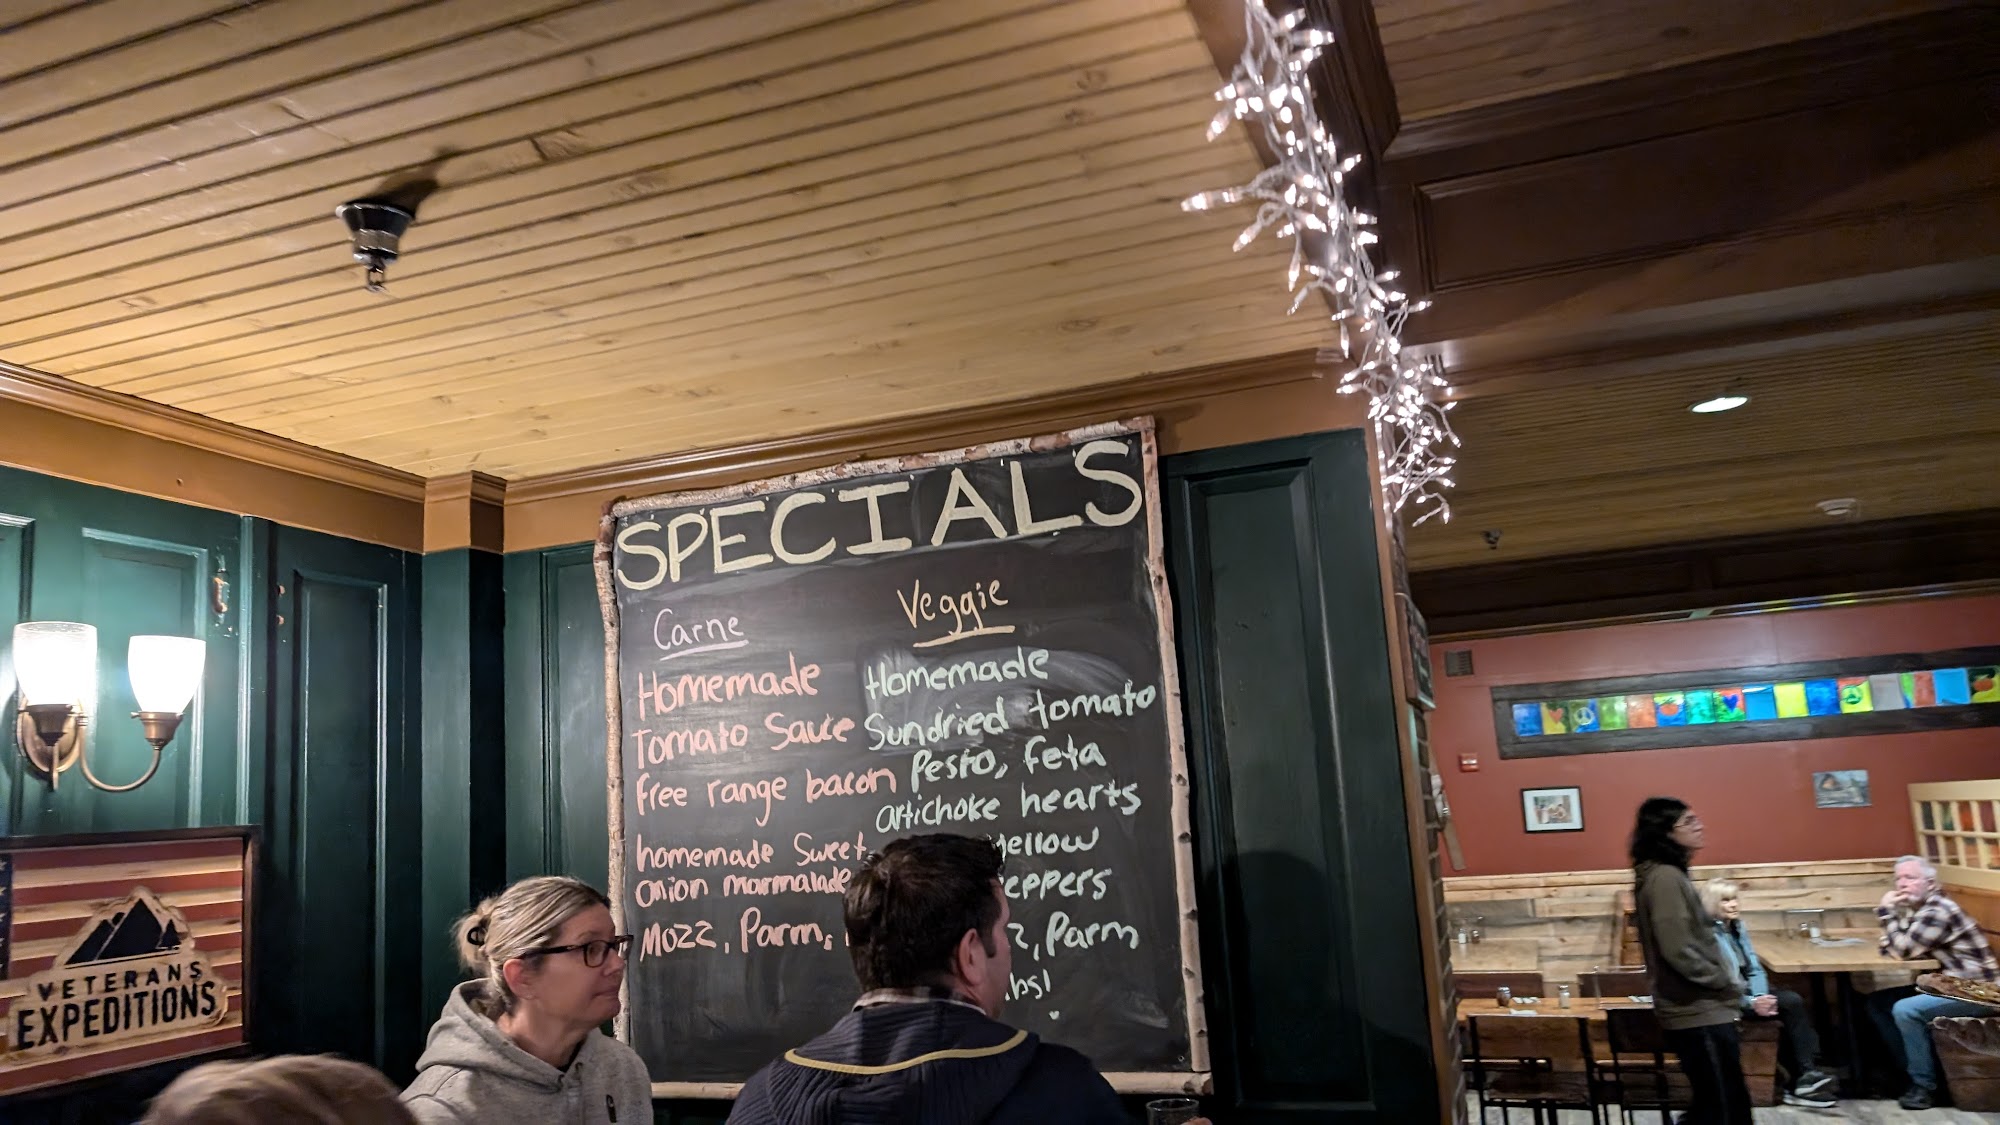 SPECIALS
Carne
Homemade
Tomato Sauce
free range bacon
homemade Sweet
onion marmalade
Mozz, Parm,
Veggie
Homemade
Sundried tomato
Pesto, feta
artichoke hearts
yellow
Parm
VETERANS
EXPEDITIONS